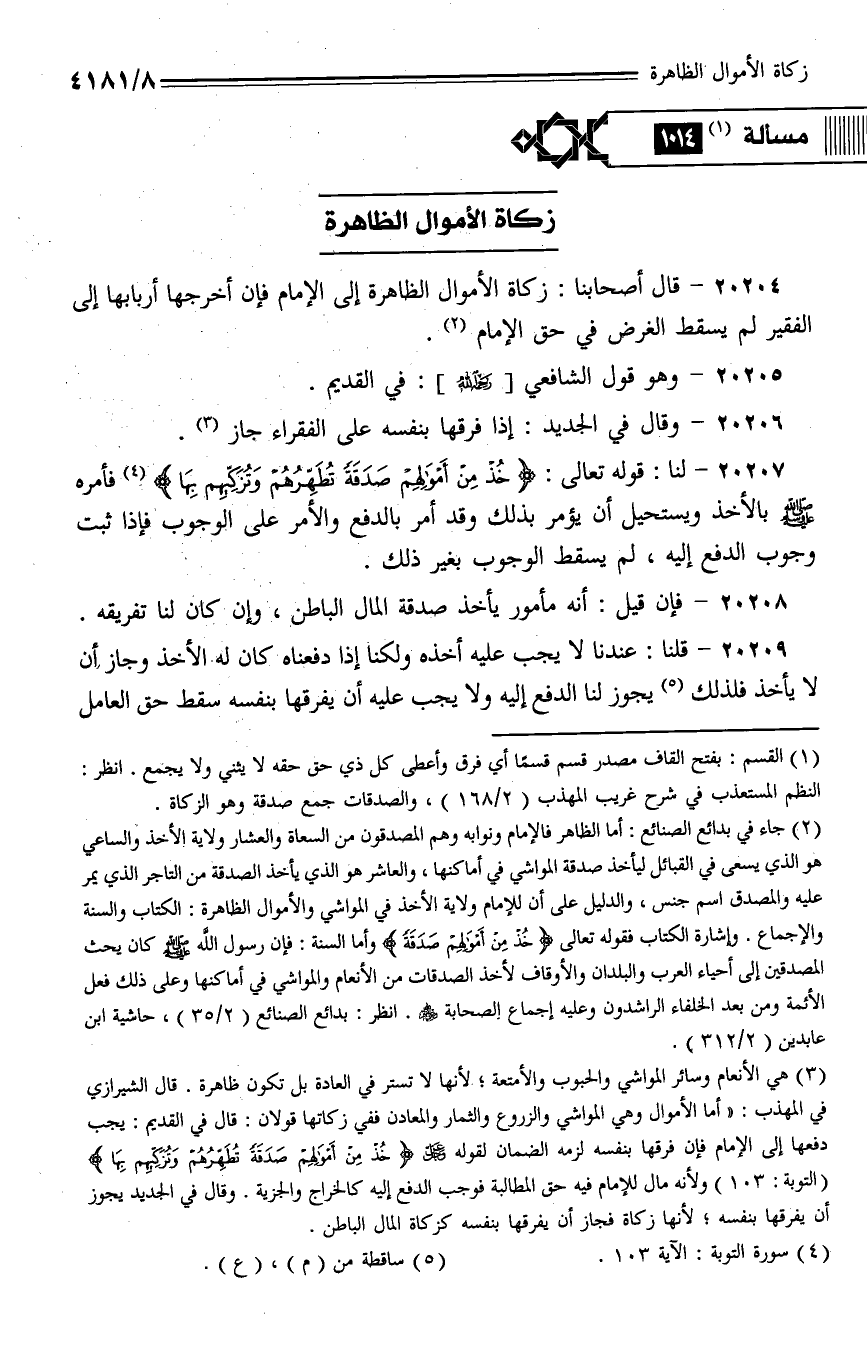 زكاة الأموال الظاهرة ٤١٨١/٨
مسألة (١) ١٠١٤
زكاة الأموال الظاهرة
٢٠٢٠٤ - قال أصحابنا : زكاة الأموال الظاهرة إلى الإمام فإن أخرجها أربابها إلى
الفقير لم يسقط الغرض في حق الإمام (٢) .
٢٠٢٠٥ - وهو قول الشافعي [ رحمه الله ] : في القديم .
٢٠٢٠٦ - وقال في الجديد : إذا فرقها بنفسه على الفقراء جاز (٣) .
٢٠٢٠٧ - لنا : قوله تعالى : ﴿ خُذْ مِنْ أَمْوَٰلِهِمْ صَدَقَةً تُطَهِّرُهُمْ وَتُزَكِّيهِم بِهَا ﴾ (٤) فأمره
ﷺ بالأخذ ويستحيل أن يؤمر بذلك وقد أمر بالدفع والأمر على الوجوب فإذا ثبت
وجوب الدفع إليه ، لم يسقط الوجوب بغير ذلك .
٢٠٢٠٨ - فإن قيل : أنه مأمور يأخذ صدقة المال الباطن ، وإن كان لنا تفريقه .
٢٠٢٠٩ - قلنا : عندنا لا يجب عليه أخذه ولكنا إذا دفعناه كان له الأخذ وجاز أن
لا يأخذ فلذلك (٥) يجوز لنا الدفع إليه ولا يجب عليه أن يفرقها بنفسه سقط حق العامل
(١) القسم : بفتح القاف مصدر قسم قسمًا أي فرق وأعطى كل ذي حق حقه لا يثني ولا يجمع . انظر :
النظم المستعذب في شرح غريب المهذب ( ١٦٨/٢ ) ، والصدقات جمع صدقة وهو الزكاة .
(٢) جاء في بدائع الصنائع : أما الظاهر فالإمام ونوابه وهم المصدقون من السعاة والعشار ولاية الأخذ والساعي
هو الذي يسعى في القبائل ليأخذ صدقة المواشي في أماكنها ، والعاشر هو الذي يأخذ الصدقة من التاجر الذي يمر
عليه والمصدق اسم جنس ، والدليل على أن للإمام ولاية الأخذ في المواشي والأموال الظاهرة : الكتاب والسنة
والإجماع . وإشارة الكتاب فقوله تعالى ﴿ خُذْ مِنْ أَمْوَٰلِهِمْ صَدَقَةً ﴾ وأما السنة : فإن رسول اللَّه ﷺ كان يحث
المصدقين إلى أحياء العرب والبلدان والأوقاف لأخذ الصدقات من الأنعام والمواشي في أماكنها وعلى ذلك فعل
الأئمة ومن بعد الخلفاء الراشدون وعليه إجماع الصحابة ﷺ . انظر : بدائع الصنائع ( ٣٥/٢ ) ، حاشية ابن
عابدين ( ٣١٢/٢ ) .
(٣) هي الأنعام وسائر المواشي والحبوب والأمتعة ؛ لأنها لا تستر في العادة بل تكون ظاهرة . قال الشيرازي
في المهذب : « أما الأموال وهي المواشي والزروع والثمار والمعادن ففي زكاتها قولان : قال في القديم : يجب
دفعها إلى الإمام فإن فرقها بنفسه لزمه الضمان لقوله ﷻ ﴿ خُذْ مِنْ أَمْوَٰلِهِمْ صَدَقَةً تُطَهِّرُهُمْ وَتُزَكِّيهِم بِهَا ﴾
(التوبة : ١٠٣ ) ولأنه مال للإمام فيه حق المطالبة فوجب الدفع إليه كالخراج والجزية . وقال في الجديد يجوز
أن يفرقها بنفسه ؛ لأنها زكاة فجاز أن يفرقها بنفسه كزكاة المال الباطن .
(٤) سورة التوبة : الآية ١٠٣ . (٥) ساقطة من ( م ) ، ( ع ) .